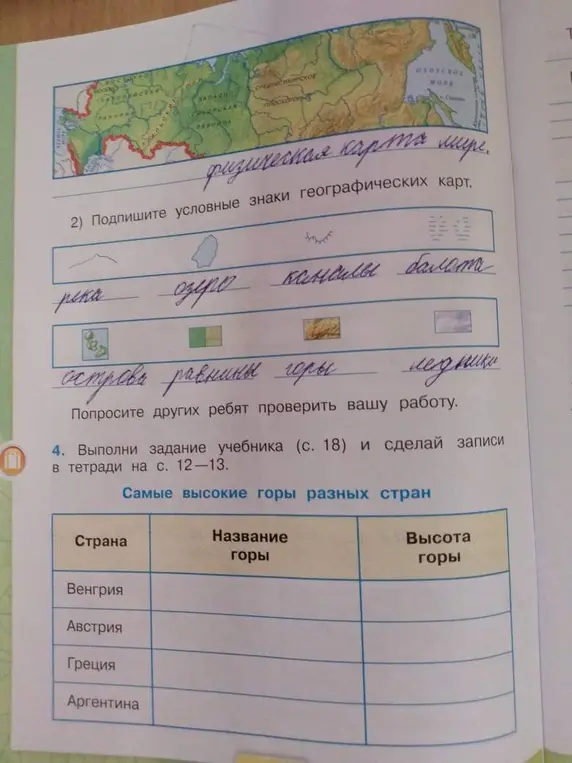 ОХОТСКОЕ
МОРЕ
физическая карта мира.
2) Подпишите условные знаки географических карт.
река озеро каналы балота
острова равнины горы ледники
Попросите других ребят проверить вашу работу.
4. Выполни задание учебника (с. 18) и сделай записи
в тетради на с. 12—13.
Самые высокие горы разных стран
Страна Название горы Высота горы
Венгрия
Австрия
Греция
Аргентина